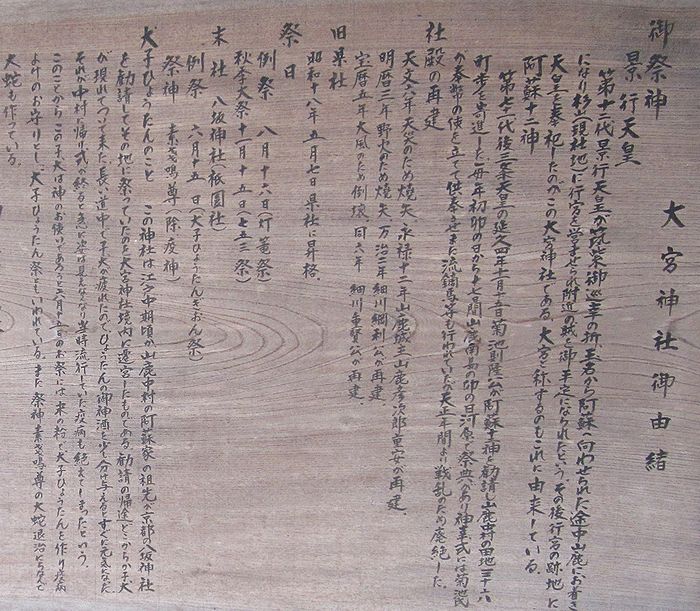 大宮神社御由緒
御祭神
景行天皇
第十二代景行天皇が筑紫御巡幸の折、玉名から阿蘇へ向わせられた途中山鹿にお着き
になり杉山(現社地)に行宮を営ませられ附近の賊を御平定になられたという。その後行宮の跡地に
天皇を奉祀したのがこの大宮神社である。大宮と称するのもこれに由来している。
阿蘇十二神
第七十一代後三条天皇の延久四年十月五日菊池則隆公が阿蘇十二神を勧請し山鹿中村の田地三十六
町歩を寄進した毎年初卯の日から十七日間山鹿南島の卯の日河原で祭典があり神幸式には菊池氏
が奉幣の使を立てて供奉させまた流鏑馬等も行われていたが天正年間より戦乱のため廃絶した。
社殿の再建
天文六年天災のため焼失、永禄十二年山鹿城主山鹿彦次郎重安が再建。
明暦三年野火のため焼失、万治二年細川綱利公が再建。
宝暦五年大風のため倒壊、同六年 細川重賢公が再建。
旧県社
昭和十八年五月七日県社に昇格。
祭日
例祭 八月十六日(灯籠祭)
秋季大祭十一月十五日(七五三祭)
末社 八坂神社(祇園社)
例祭、六月十五日(犬子ひょうたんぎおん祭)
祭神 素戔鳴尊(除疫神)
犬子ひょうたんのこと この神社は江戸中期頃が山鹿中村の阿蘇家の祖先が京都の八坂神社
を勧請してその地に祭っていたのを大宮神社境内に遷宮したまれてある勧請の帰途どこからか子犬
が現れてついて来た長い道中で子犬が疲れたのでひょうたんの御神酒を少し分け与えるとすぐに元気になった
それが中村に帰り式の終ると急に姿は見えなくなり当時流行していた疫病も絶えてしまったという。
このことからこの子犬は神のお使いであろうと六月十五日のお祭には米の粉で犬子ひょうたんを作り疫病
よけのお守りとし、犬子ひょうたん祭ともいわれている。また祭神素戔鳴尊の大蛇退治にちなんで
大蛇を作っている。